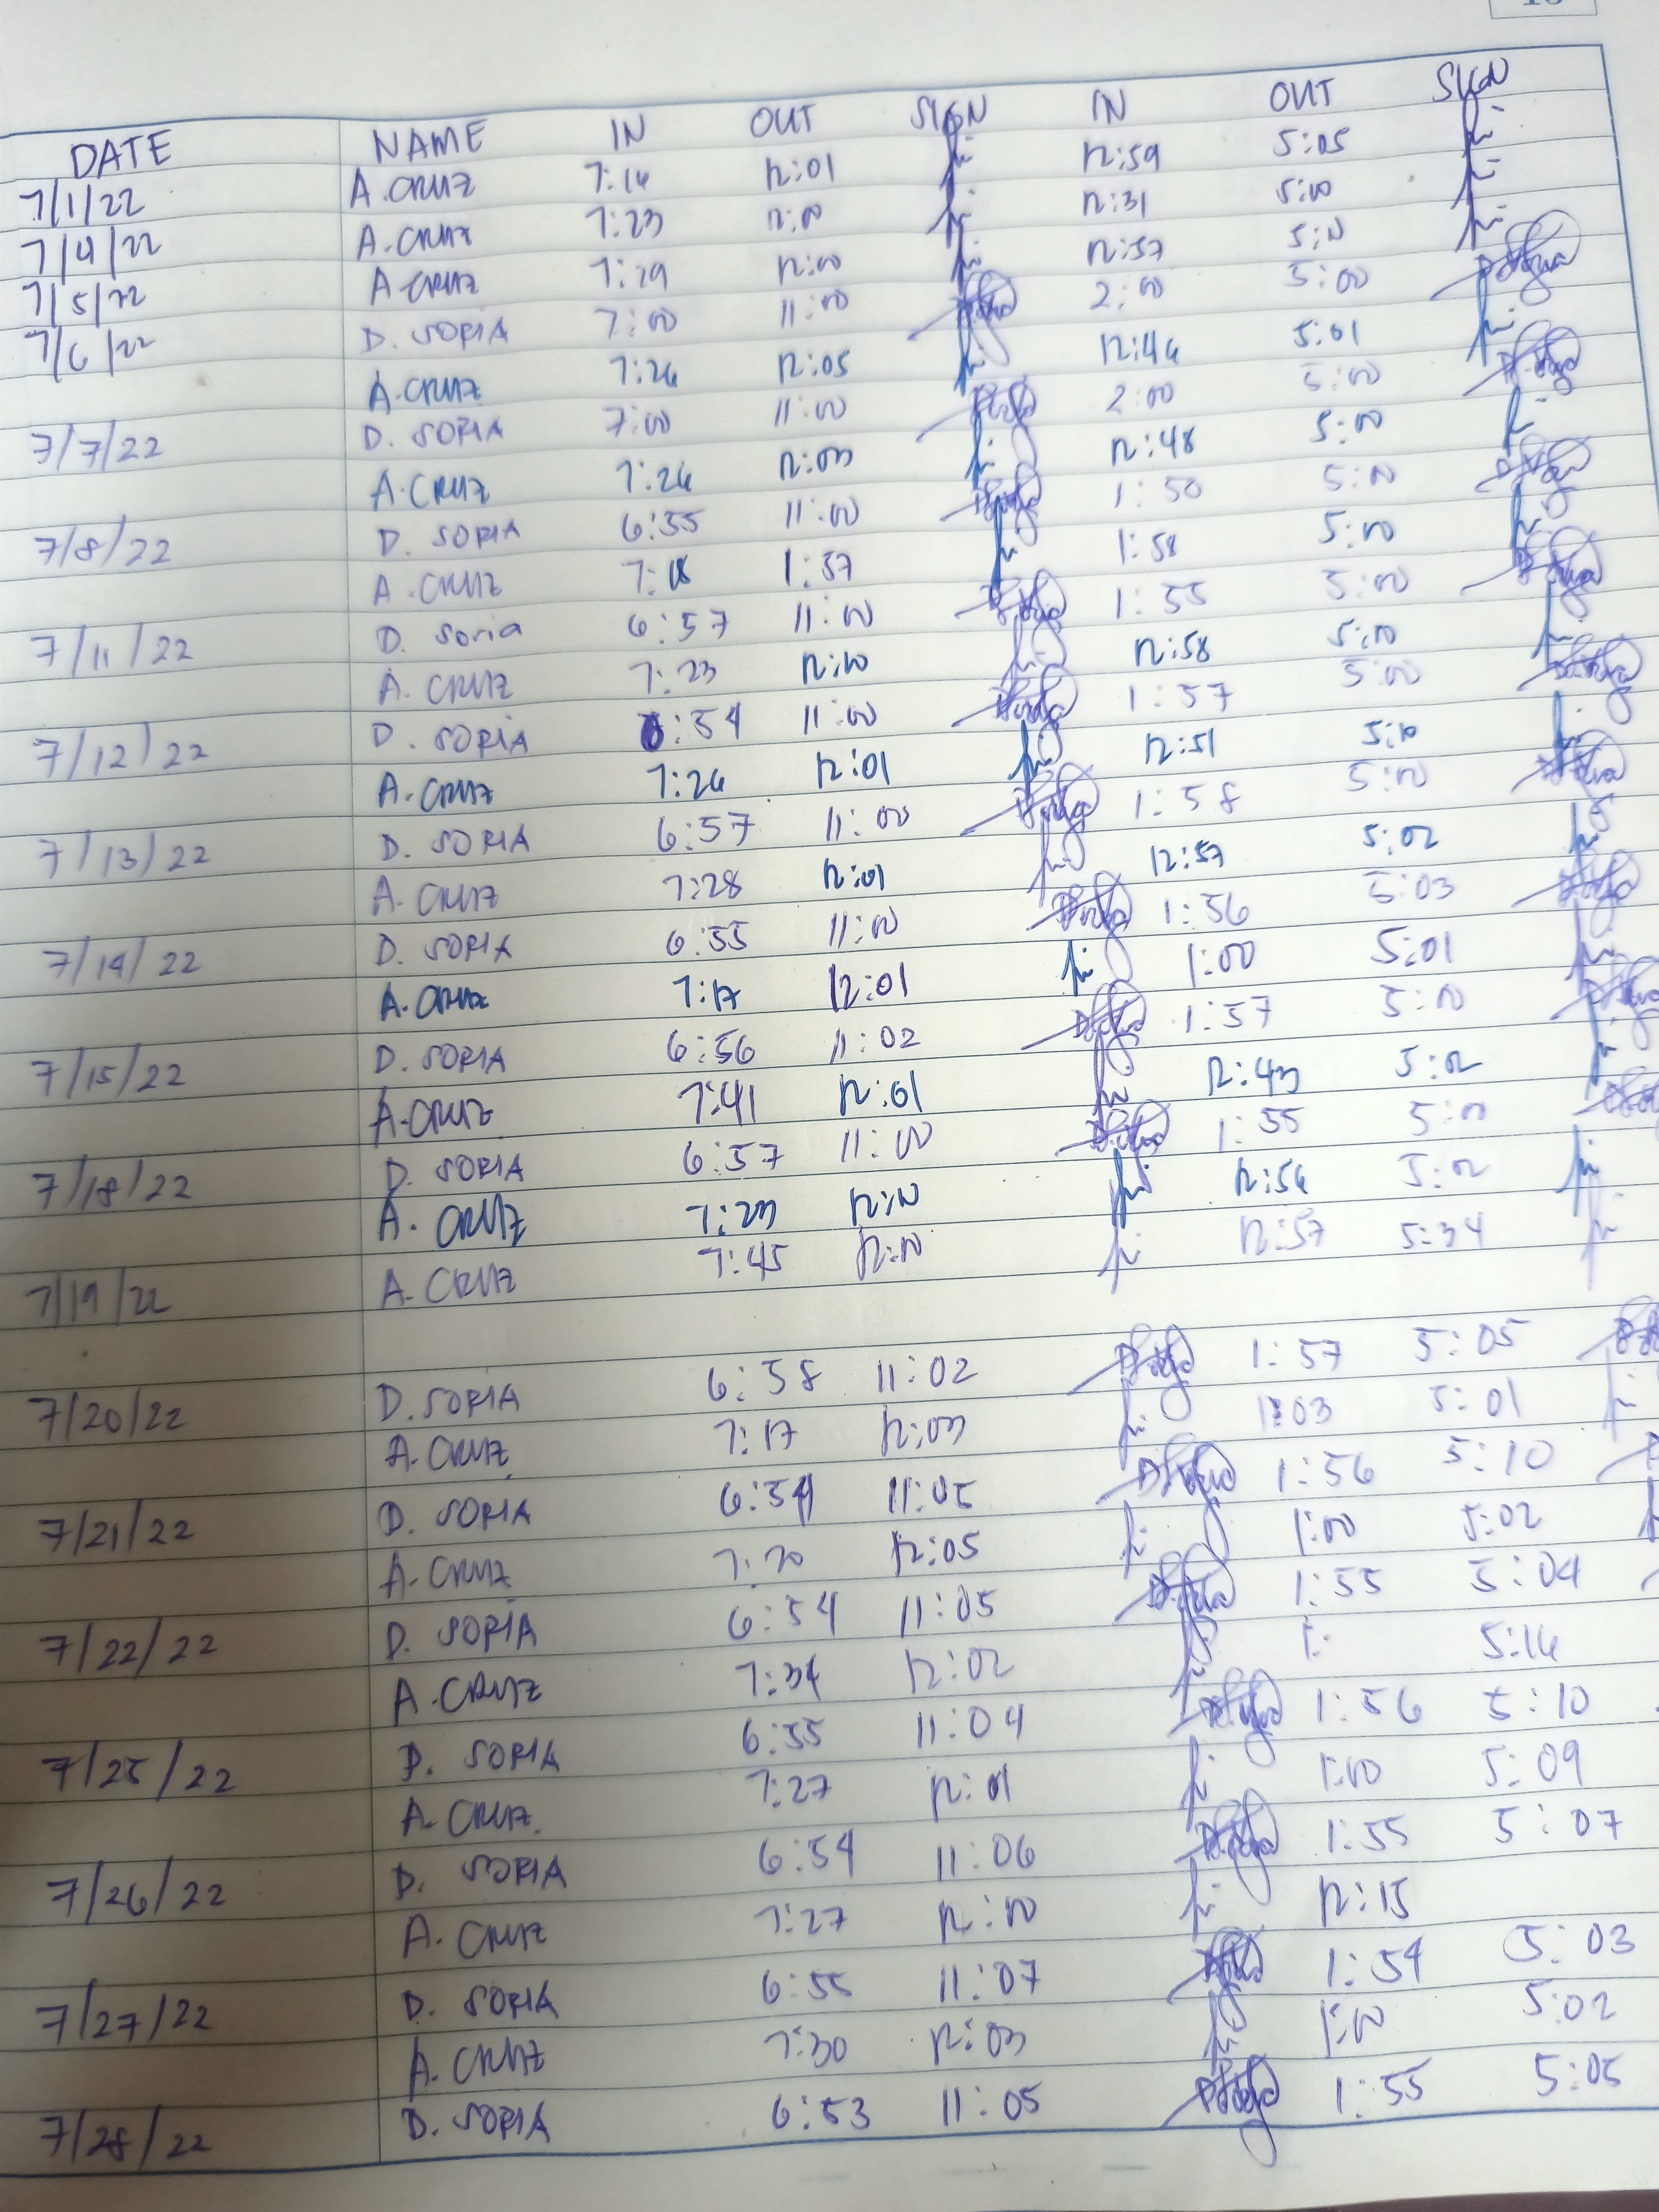 DATE NAME IN OUT SIGN IN OUT SIGN
7/1/22 A. CRUZ 7:16 12:01 12:59 5:05
7/4/22 A. CRUZ 7:23 12:00 12:31 5:00
7/5/22 A. CRUZ 7:29 12:00 12:57 5:00
7/6/22 D. SORIA 7:00 11:00 2:00 5:00
A. CRUZ 7:26 12:05 12:46 5:01
7/7/22 D. SORIA 7:00 11:00 2:00 5:00
A. CRUZ 7:26 12:03 12:48 5:00
7/8/22 D. SORIA 6:55 11:00 1:50 5:00
A. CRUZ 7:18 1:57 1:58 5:00
7/11/22 D. Soria 6:57 11:00 1:55 5:00
A. CRUZ 7:23 12:00 12:58 5:00
7/12/22 D. SORIA 6:54 11:00 1:57 5:00
A. CRUZ 7:26 12:01 12:51 5:10
7/13/22 D. SORIA 6:57 11:00 1:58 5:00
A. CRUZ 7:28 12:01 12:57 5:02
7/14/22 D. SORIA 6:55 11:00 1:56 5:03
A. CRUZ 7:17 12:01 1:00 5:01
7/15/22 D. SORIA 6:56 11:02 1:57 5:00
A. CRUZ 7:41 12:01 12:43 5:02
7/18/22 D. SORIA 6:57 11:00 1:55 5:00
A. CRUZ 7:23 12:00 12:56 5:02
7/19/22 A. CRUZ 7:45 12:00 12:57 5:34
7/20/22 D. SORIA 6:58 11:02 1:57 5:05
A. CRUZ 7:17 12:03 1:03 5:01
7/21/22 D. SORIA 6:54 11:05 1:56 5:10
A. CRUZ 7:20 12:05 1:00 5:02
7/22/22 D. SORIA 6:54 11:05 1:55 5:04
A. CRUZ 7:34 12:02 1: 5:16
7/25/22 D. SORIA 6:55 11:04 1:56 5:10
A. CRUZ 7:27 12:01 1:00 5:09
7/26/22 D. SORIA 6:54 11:06 1:55 5:07
A. CRUZ 7:27 12:00 12:15
7/27/22 D. SORIA 6:55 11:07 1:54 5:03
A. CRUZ 7:30 12:03 1:00 5:02
7/28/22 D. SORIA 6:53 11:05 1:55 5:05